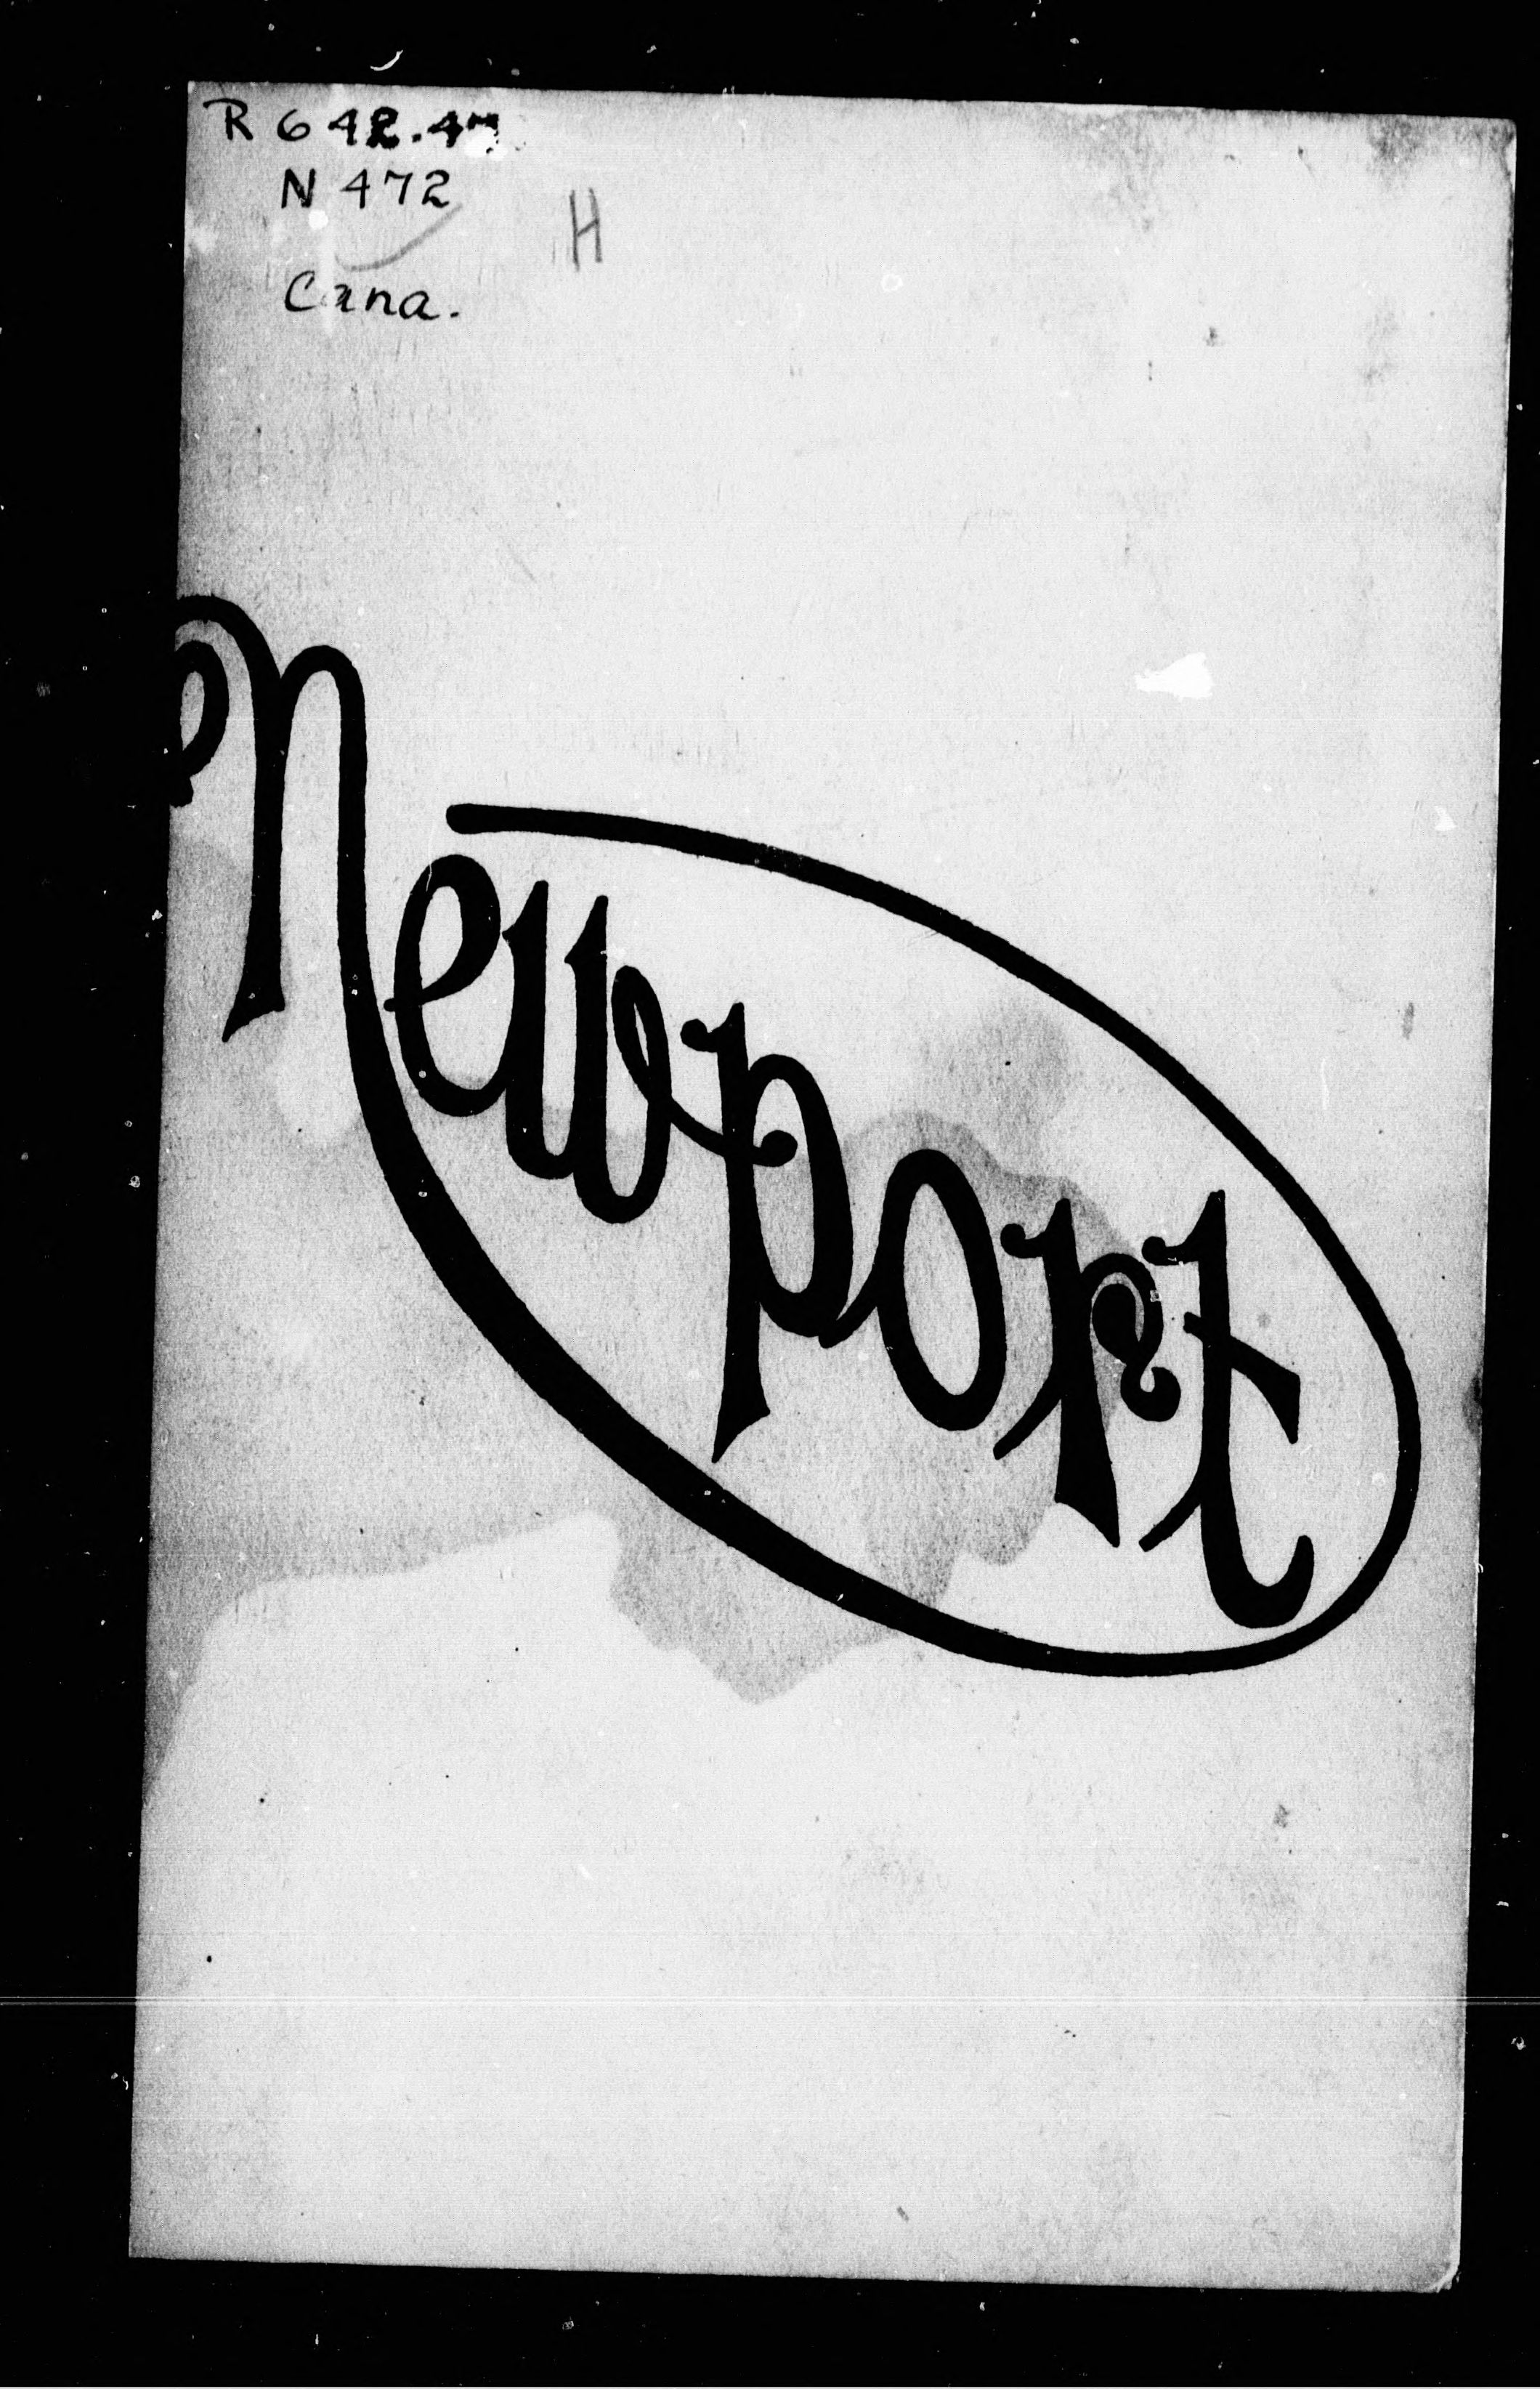 R 642.47
N 472
H
Cana.
Newport